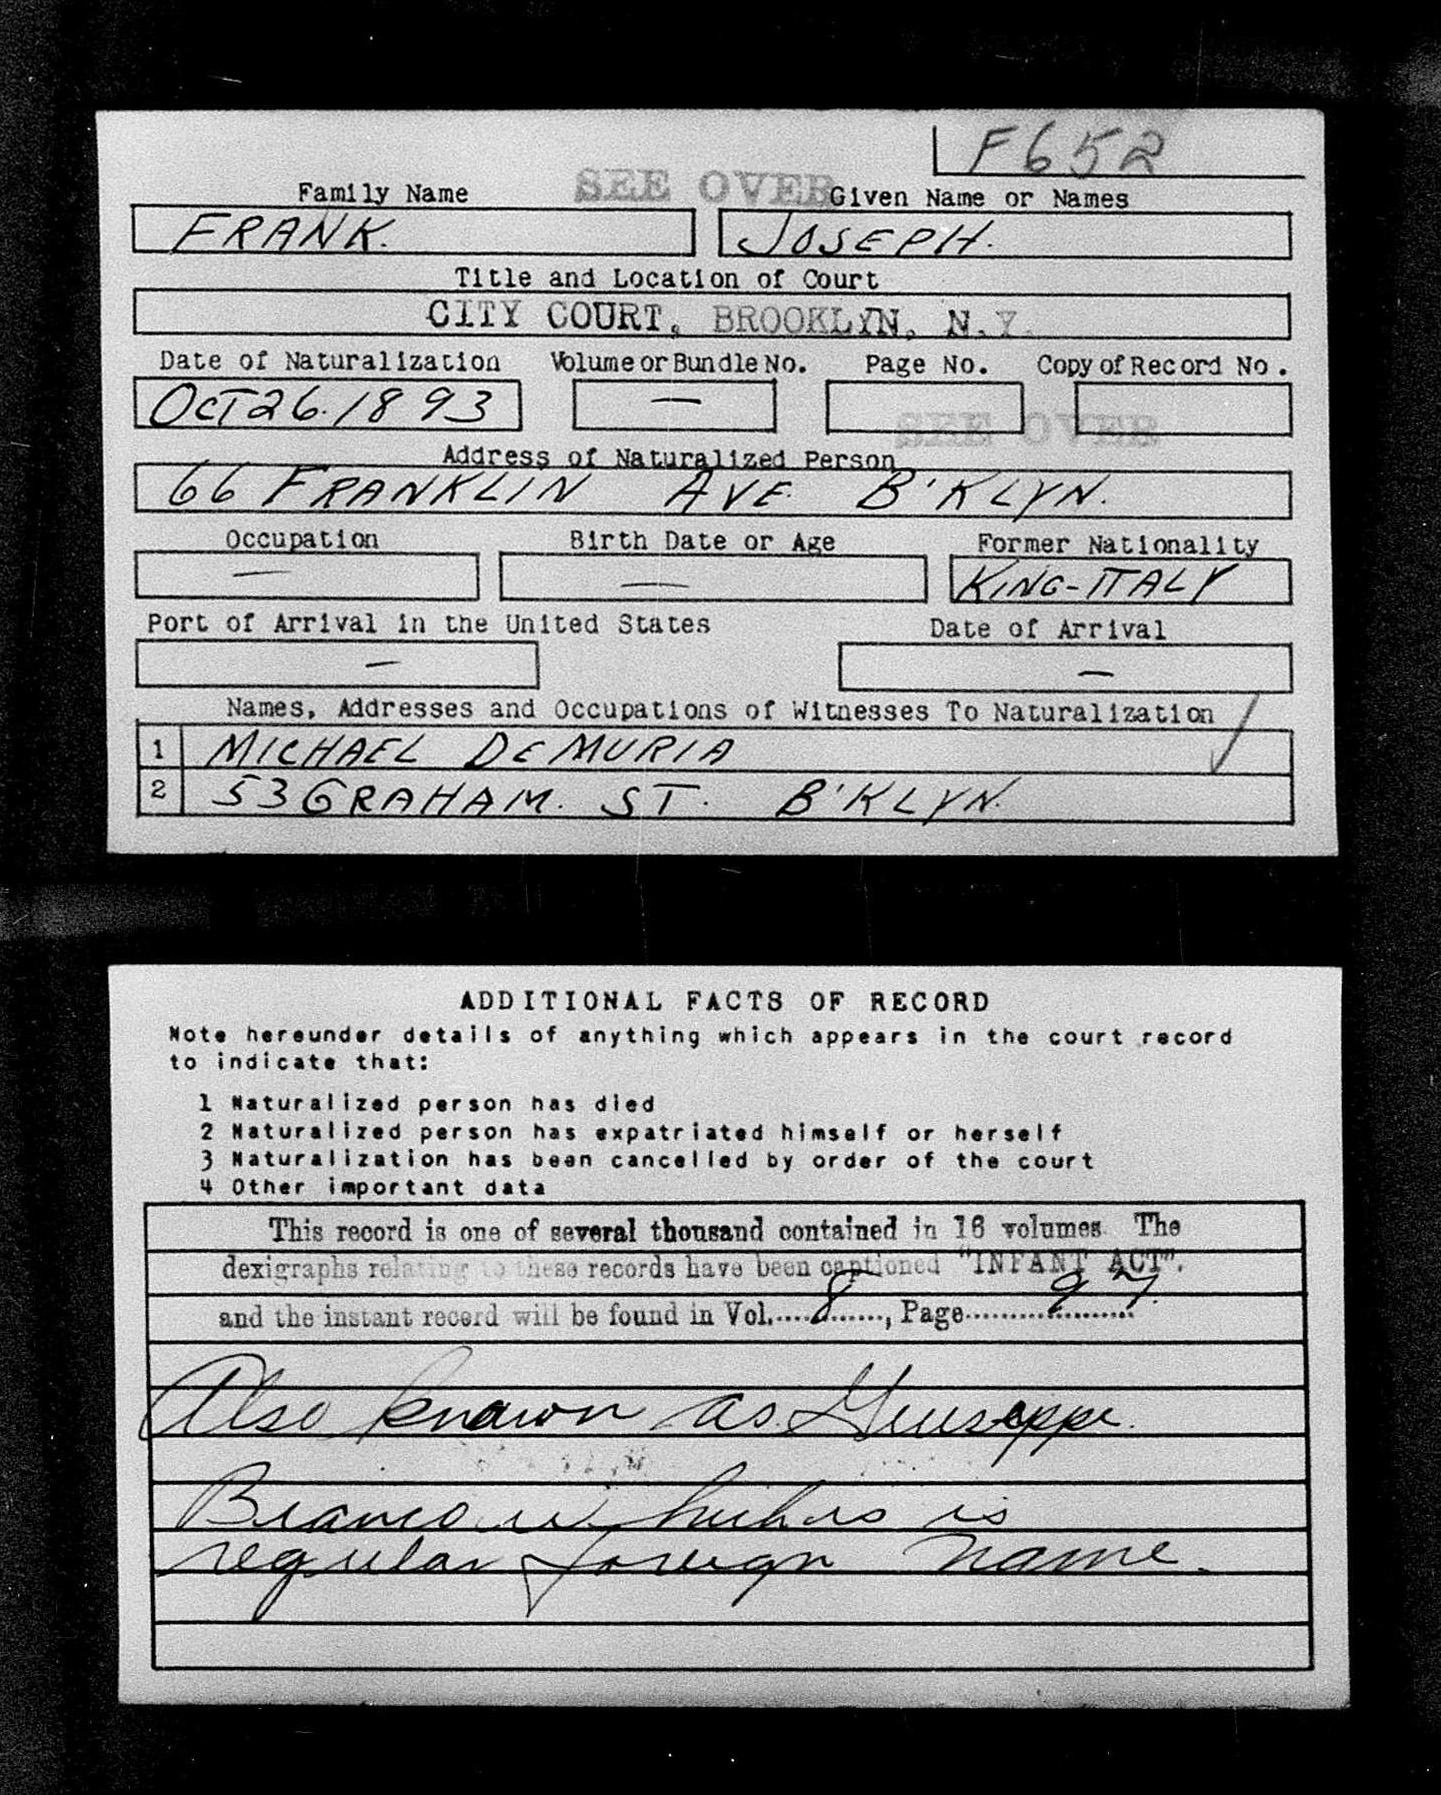 F652
SEE OVER
Family Name Given Name or Names
FRANK. JOSEPH.
Title and Location of Court
CITY COURT, BROOKLYN, N.Y.
Date of Naturalization Volume or Bundle No. Page No. Copy of Record No.
OCT 26. 1893 —
SEE OVER
Address of Naturalized Person
66 FRANKLIN AVE. B'KLYN.
Occupation Birth Date or Age Former Nationality
— — KING-ITALY
Port of Arrival in the United States Date of Arrival
— —
Names, Addresses and Occupations of Witnesses To Naturalization
1 MICHAEL DEMURIA
2 53 GRAHAM. ST. B'KLYN.
ADDITIONAL FACTS OF RECORD
Note hereunder details of anything which appears in the court record
to indicate that:
1 Naturalized person has died
2 Naturalized person has expatriated himself or herself
3 Naturalization has been cancelled by order of the court
4 Other important data
This record is one of several thousand contained in 16 volumes. The
dexigraphs relating to these records have been captioned "INFANT ACT".
and the instant record will be found in Vol.....8......, Page....97....
Also known as Giuseppe
Branco which is
regular foreign name.